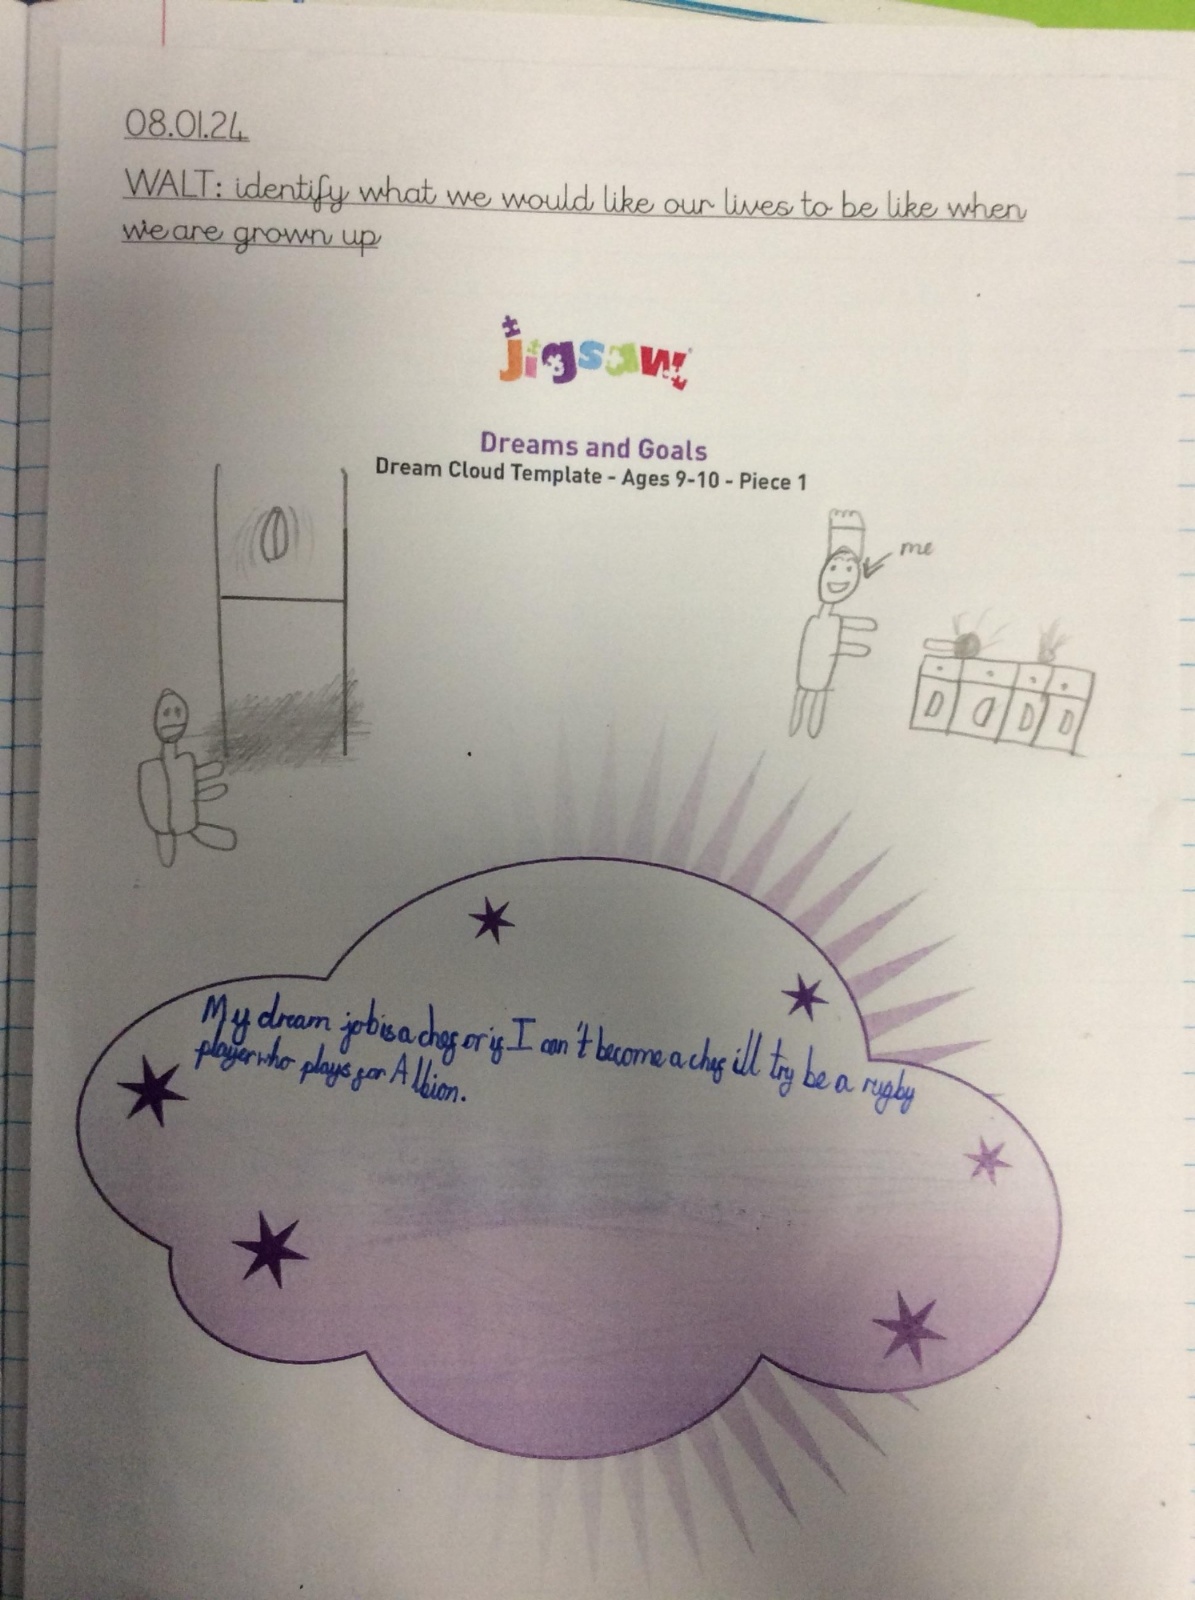 08.01.24
WALT: identify what we would like our lives to be like when
we are grown up
jigsaw
Dreams and Goals
Dream Cloud Template - Ages 9-10 - Piece 1
me
My dream job is a chef or if I can't become a chef ill try be a rugby
player who plays for Albion.